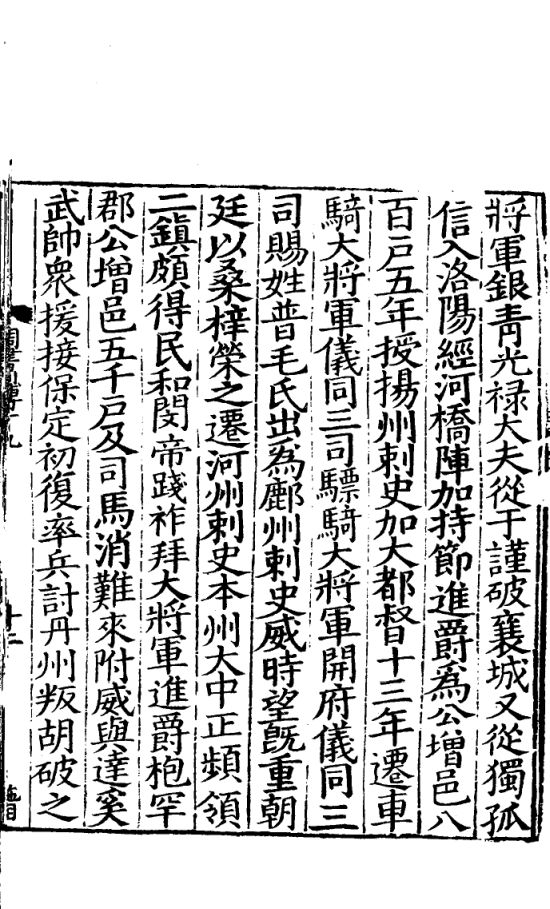 將軍銀青光祿大夫從于謹破襄城又從獨孤
信入洛陽經河橋陣加持節進爵爲公增邑八
百戸五年授揚州刺史加大都督十三年遷車
騎大將軍儀同三司驃騎大將軍開府儀同三
司賜姓普毛氏出爲鄜州刺史威時望旣重朝
廷以桑梓榮之遷河州刺史本州大中正頻領
二鎮頗得民和閔帝踐祚拜大將軍進爵枹罕
郡公增邑五千戸及司馬消難來附威與達奚
武帥衆援接保定初復率兵討丹州叛胡破之
十二